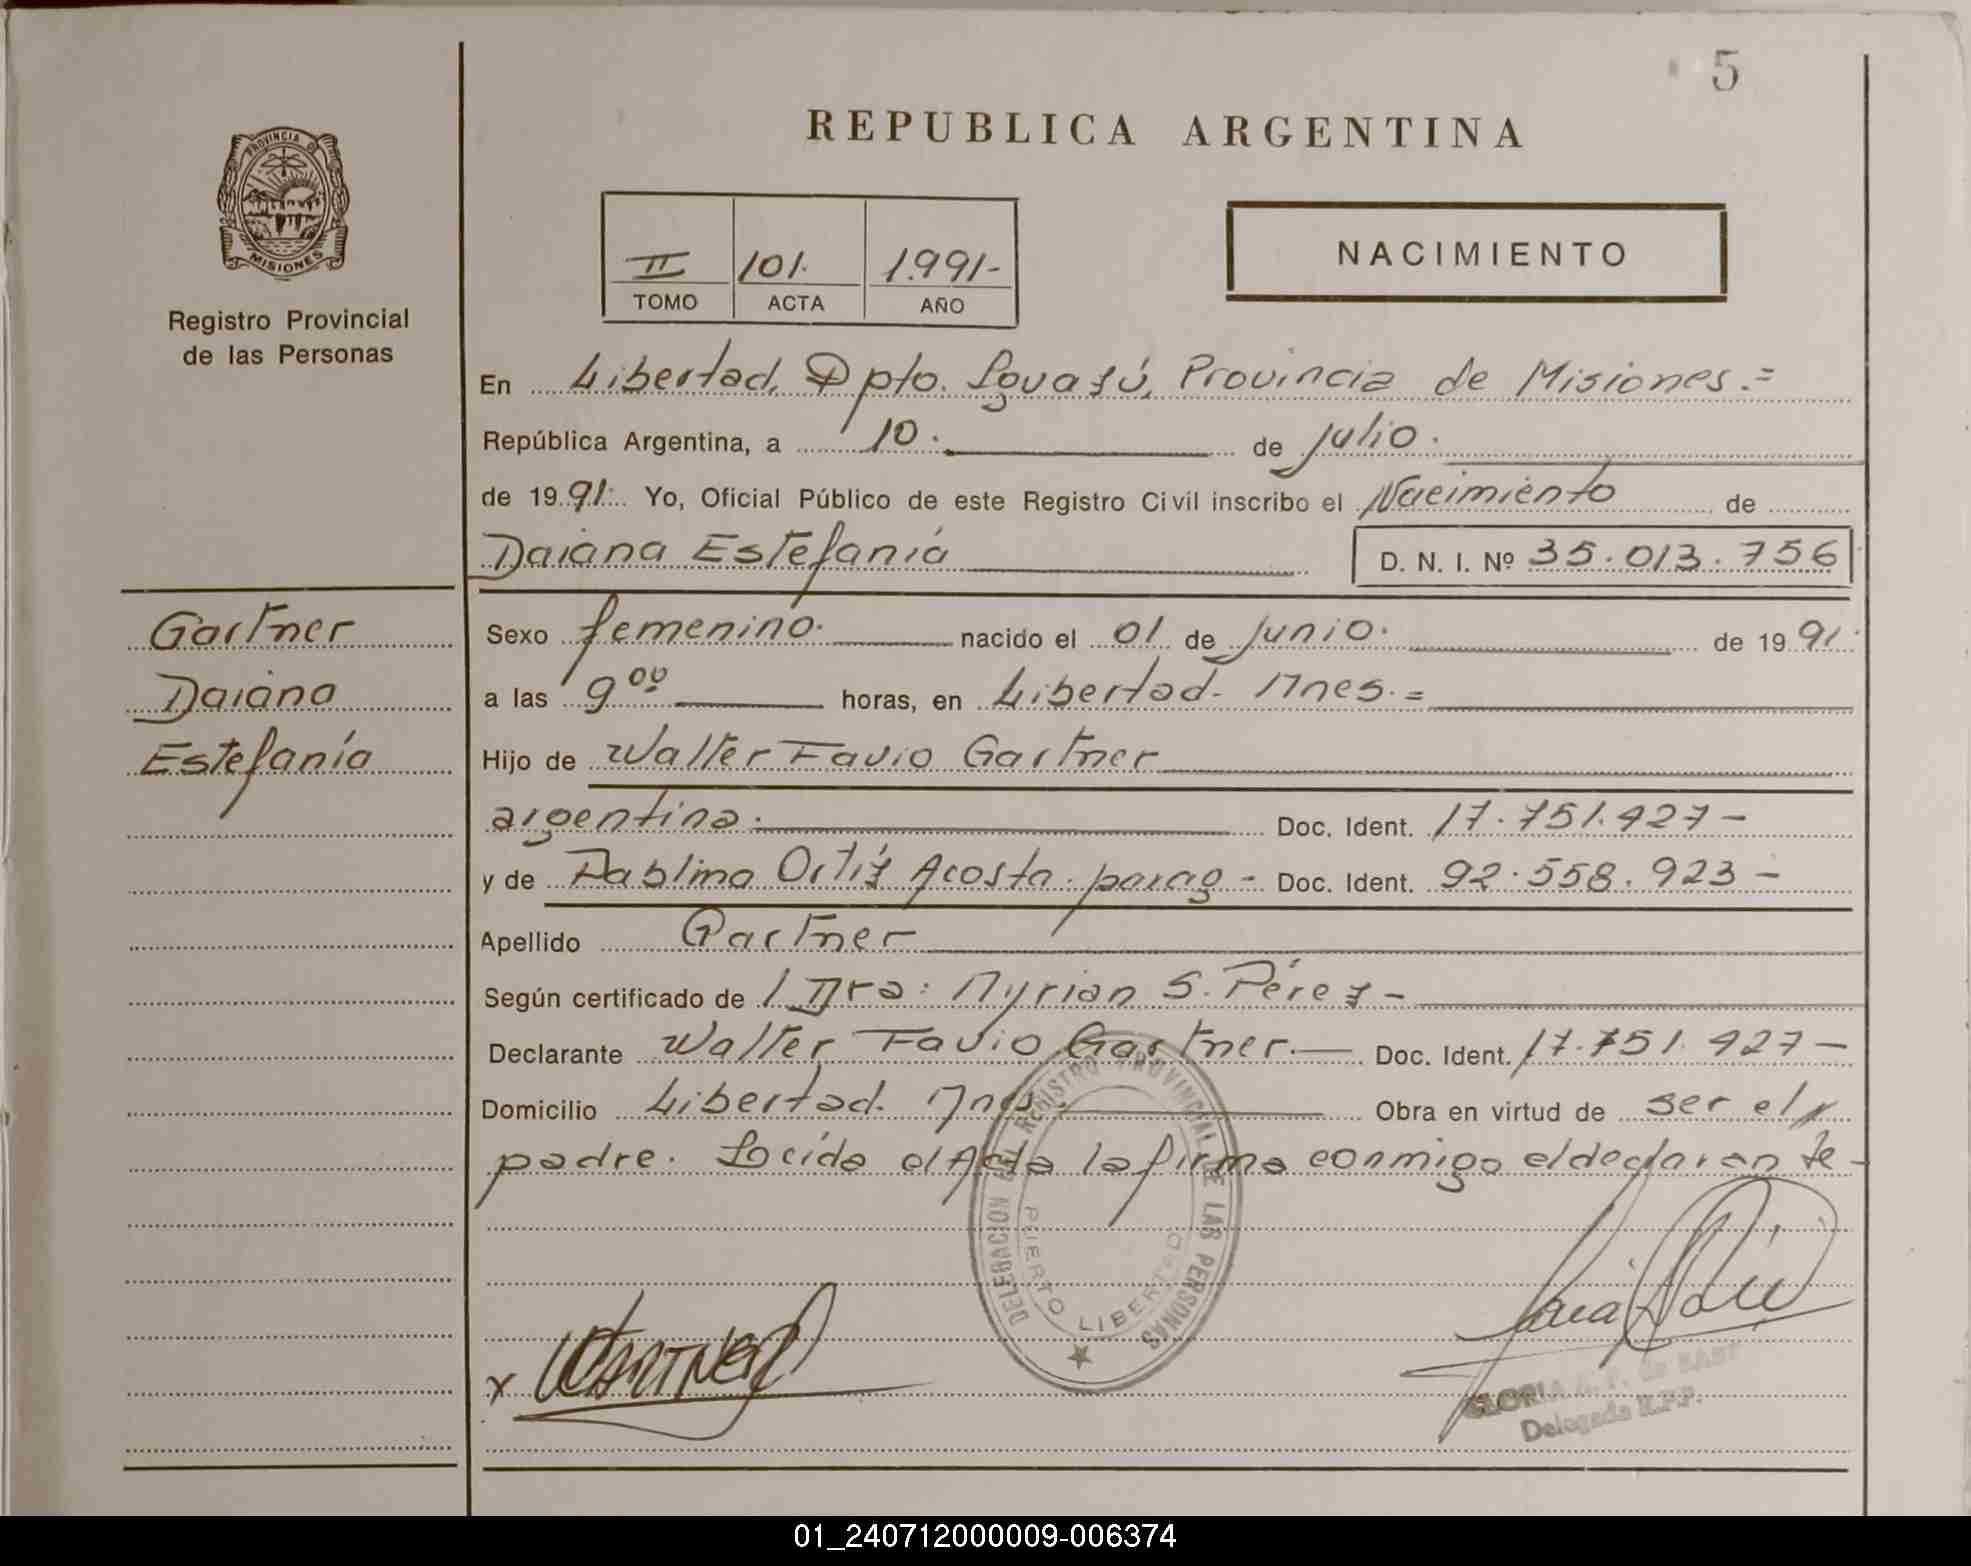 5
REPUBLICA ARGENTINA
PROVINCIA DE
MISIONES
Registro Provincial
de las Personas
II 101. 1.991-
TOMO ACTA AÑO
NACIMIENTO
En Libertad, Dpto. Iguazú, Provincia de Misiones.=
República Argentina, a 10. de Julio.
de 1991. Yo, Oficial Público de este Registro Civil inscribo el Nacimiento de
Daiana Estefanía D. N. I. Nº 35.013.756
Gartner
Daiana
Estefanía
Sexo femenino. nacido el 01 de Junio. de 1991.
a las 9 00 horas, en Libertad- Mnes.=
Hijo de Walter Favio Gartner
argentina. Doc. Ident. 17.751.927-
y de Pablina Ortíz Acosta. parag- Doc. Ident. 92.558.923-
Apellido Gartner
Según certificado de / Dra: Myrian S. Pérez-
Declarante Walter Favio Gartner.— Doc. Ident. 17.751.927-
Domicilio Libertad. Mnes. Obra en virtud de ser el
padre. Leída el Acta la firma conmigo el declarante-
DELEGACION DEL REGISTRO PROVINCIAL DE LAS PERSONAS
PUERTO LIBERTAD
x GARTNER
GLORIA
Delegada R.P.P.
01_240712000009-006374